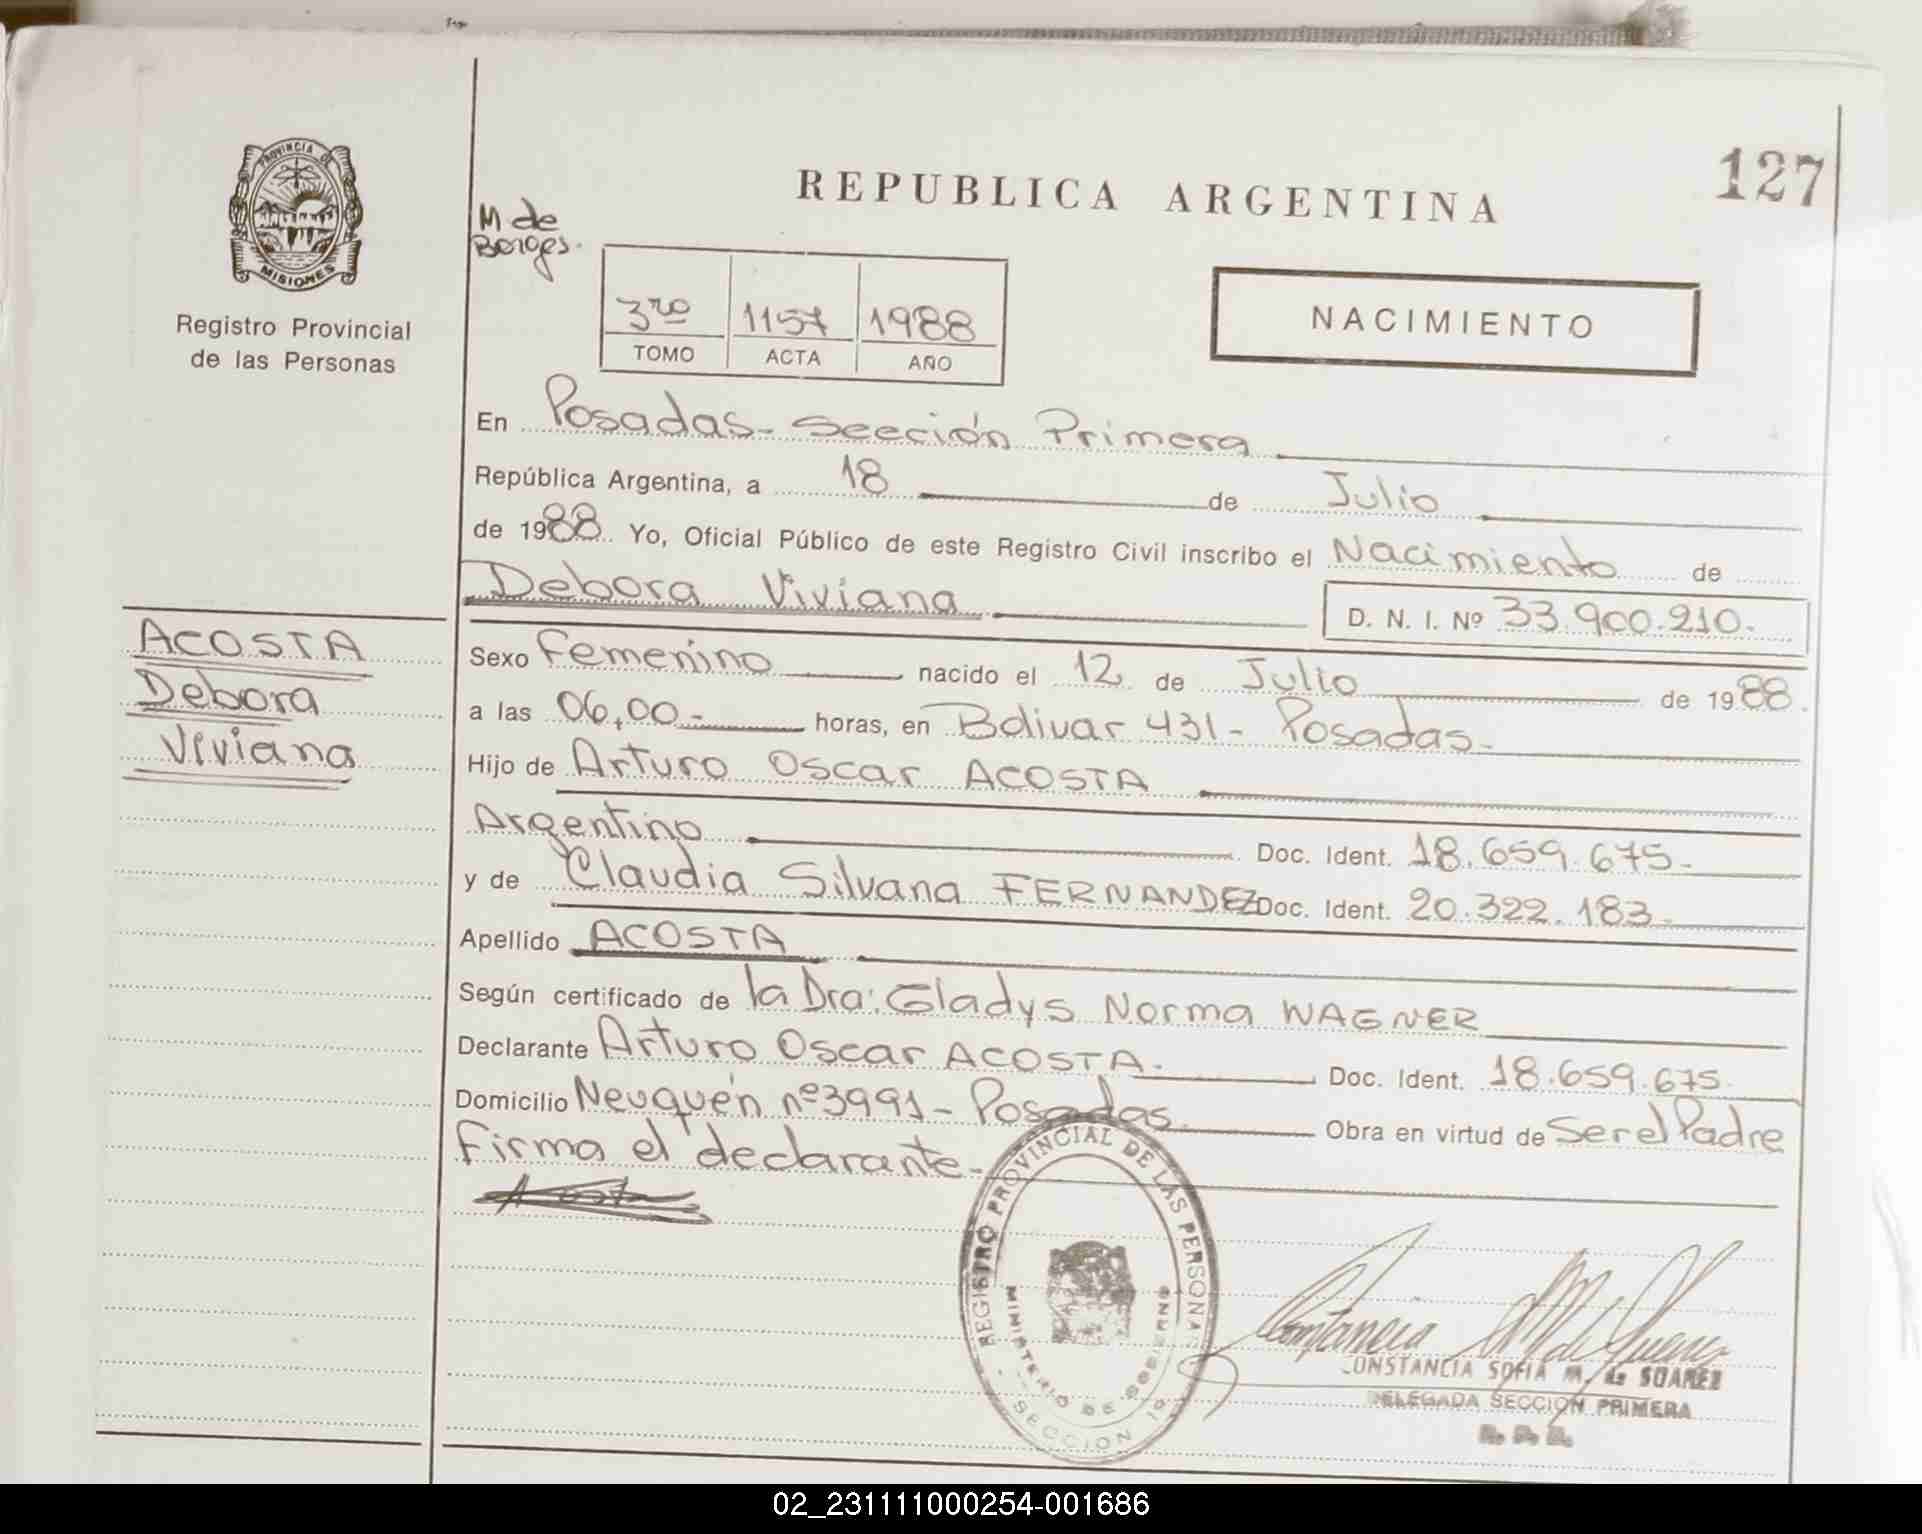 127
PROVINCIA DE
MISIONES
Registro Provincial
de las Personas
REPUBLICA ARGENTINA
M de
Borges.
3ro 1157 1988
TOMO ACTA AÑO
NACIMIENTO
En Posadas - Sección Primera
República Argentina, a 18 de Julio
de 1988 Yo, Oficial Público de este Registro Civil inscribo el Nacimiento de
Debora Viviana D. N. I. Nº 33.900.210.-
ACOSTA
Debora
Viviana
Sexo Femenino nacido el 12 de Julio de 1988.
a las 06,00 - horas, en Bolivar 431 - Posadas -
Hijo de Arturo Oscar ACOSTA
Argentino Doc. Ident. 18.659.675.-
y de Claudia Silvana FERNANDEZ Doc. Ident. 20.322.183.-
Apellido ACOSTA
Según certificado de la Dra: Gladys Norma WAGNER
Declarante Arturo Oscar ACOSTA.- Doc. Ident. 18.659.675.
Domicilio Neuquén nº 3991 - Posadas Obra en virtud de Ser el Padre
Firma el declarante -
REGISTRO PROVINCIAL DE LAS PERSONAS
MINISTERIO DE GOBIERNO
SECCION 1º
CONSTANCIA SOFIA M. de SUAREZ
DELEGADA SECCION PRIMERA
02_231111000254-001686